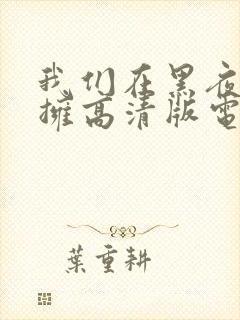 我们在黑夜
擁高清版電
葉重耕